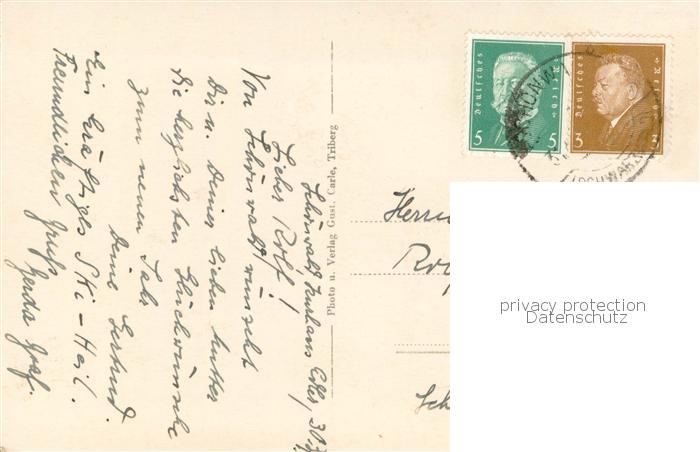 Schönwald, Kurhaus Adler, 30.
Lieber Rolf!
Von Schönwald wünscht
Dir u. Deiner lieben Mutter
die herzlichsten Glückwünsche
zum neuen Jahr
Deine Gertrud.
Ein kräftiges Ski-Heil.
Freundlichen Gruß
Gerda Graf.
Photo u. Verlag Gust. Carle, Triberg
Deutsches Reich
5 5
Deutsches Reich
3 3
Herrn
privacy protection
Datenschutz